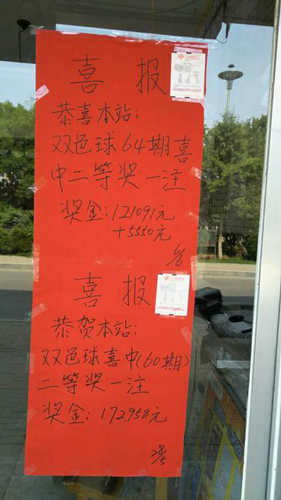 喜报
恭喜本站:
双色球64期喜
中二等奖一注
奖金:121091元
+5550元
喜报
恭贺本站:
双色球喜中(60期)
二等奖一注
奖金:172958元